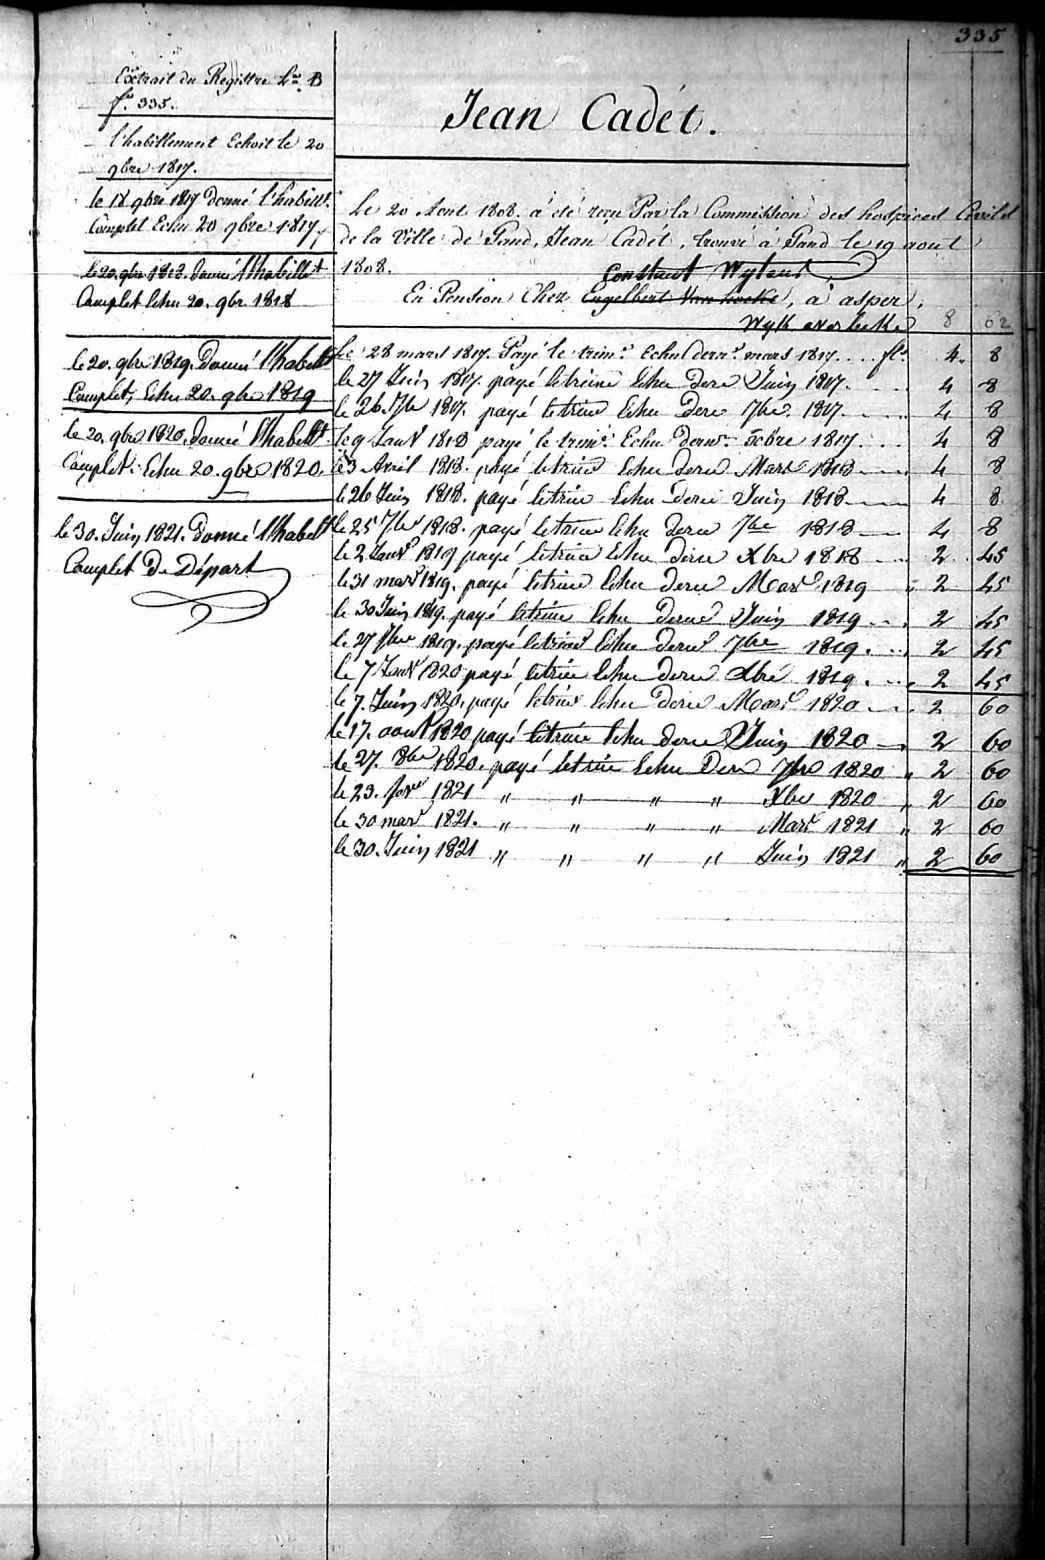 335
Extrait du Registre Lre B
fo 335.
l'habillement Echoit le 20
9bre 1817.
le 18 9bre 1817 donné l'habillt
Complet Echu 20 9bre 1817
le 20. 9bre 1818. donné l'habillt
Complet Echu 20. 9br 1818
le 20. 9bre 1819. Donné l'habillt
Complet, Echu 20. 9bre 1819
le 20. 9bre 1820. donné l'habillt
Complet. Echu 20. 9bre 1820.
le 30. Juin 1821. Donné l'habillt
Complet De Départ
Jean Cadét.
Le 20 Aout 1808. a été reçu Par la Commission des hospices Civils
de la Ville de Gand, Jean Cadét, trouvé à Gand le 19 aout
1808.
Constant Wytens
En Pension Chez Engelbert Van hoeke, à asper, 
Wyk overbeke 8 62
Le 28 mars 1817. Payé le trime Echu dernr mars 1817. . . . fls 4. 8
le 27 Juin 1817. payé le trime Echu dere Juin 1817. . . . 4 8
le 26 7br 1817. payé le trime Echu Dere 7bre 1817 4 8
le 9 Janv 1818 payé le trime Echu dernr Xcbre 1817. . . 4 8
le 3 Avril 1818. payé le trime Echu dere Mars 1818 4 8
le 26 Juin 1818. payé le trime Echu dere Juin 1818 4 8
le 25 7br 1818. payé le trime Echu dere 7bre 1818 4 8
le 2 Janvr 1819 payé le trime Echu dere Xbre 1818 2 45
le 31 mars 1819. payé le trime Echu dere Mars 1819 " 2 45
le 30 Juin 1819. payé le trime Echu dere Juin 1819 2 45
le 27 7bre 1819. payé le trime Echu dere 7bre 1819. 2 45
le 7 Janv 1820 payé le trime Echu dere Xbre 1819. 2 45
le 7. Juin 1820. payé le trime Echu Dere Mars 1820 2 60
le 17. aout 1820 payé le trime Echu dere Juin 1820 2 60
le 27. 8bre 1820. payé le trime Echu Dere 7bre 1820 " 2 60
le 23. 1821 " " " " Xbre 1820 " 2 60
le 30 mars 1821. " " " " Mars 1821 " 2 60
le 30. Juin 1821 " " " " Juin 1821 " 2 60